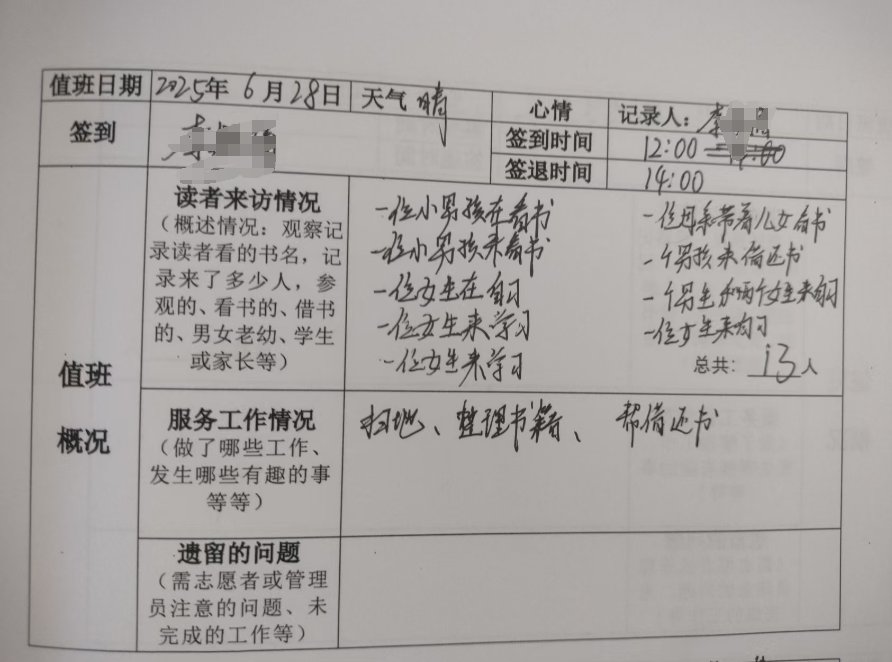 值班日期 2025年 6月28日 天气 晴 心情 记录人：李
签到 李 签到时间 12:00
签退时间 14:00
值班概况
读者来访情况
（概述情况：观察记
录读者看的书名，记
录来了多少人，参
观的、看书的、借书
的、男女老幼、学生
或家长等）
一位小男孩在看书
一位小男孩来看书
一位女生在自习
一位女生来学习
一位女生来学习
一位母亲带着儿女看书
一个男孩来借还书
一个男生和两个女生来自习
一位女生来自习
总共：13人
服务工作情况
（做了哪些工作、
发生哪些有趣的事
等等）
扫地、整理书籍、帮借还书
遗留的问题
（需志愿者或管理
员注意的问题、未
完成的工作等）